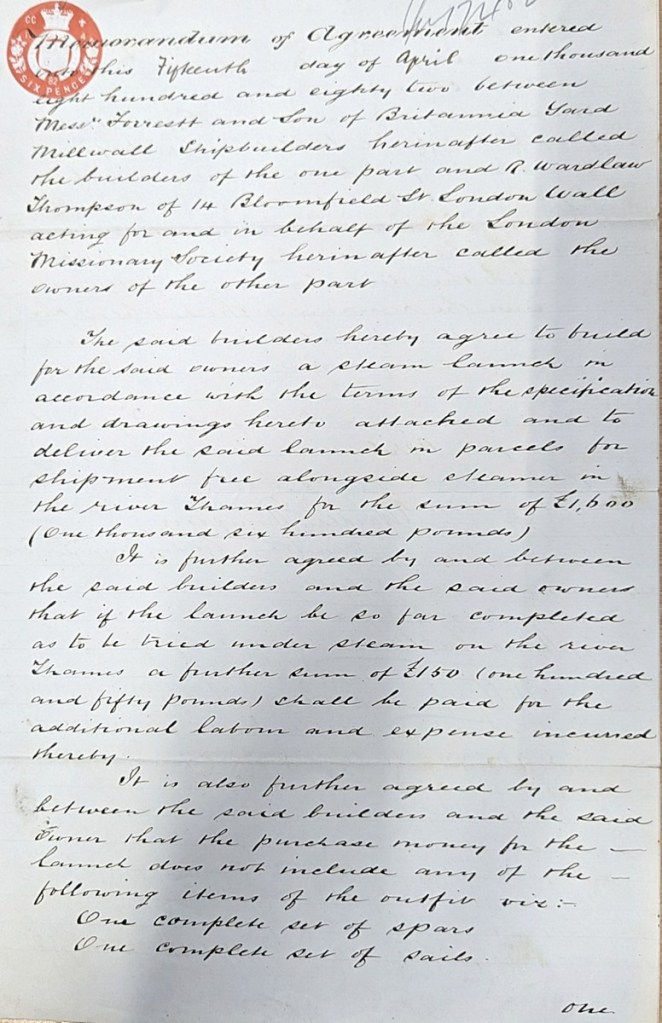 Memorandum of Agreement entered
into this Fifteenth day of April one thousand
eight hundred and eighty two between
Messrs Forrestt and Son of Britannia Yard
Millwall Shipbuilders herinafter called
the builders of the one part and R. Wardlaw
Thompson of 14 Bloomfield St. London Wall
acting for and in behalf of the London
Missionary Society herinafter called the
owners of the other part
The said builders hereby agree to build
for the said owners a steam launch in
accordance with the terms of the specification
and drawings hereto attached and to
deliver the said launch in parcels for
shipment free alongside steamer in
the river Thames for the sum of £1,600
(One thousand six hundred pounds)
It is further agreed by and between
the said builders and the said owners
that if the launch be so far completed
as to be tried under steam on the river
Thames a further sum of £150 (one hundred
and fifty pounds) shall be paid for the
additional labour and expense incurred
thereby.
It is also further agreed by and
between the said builders and the said
Owner that the purchase money for the –
launch does not include any of the –
following items of the outfit viz:-
One complete set of spars
One complete set of sails.
one
SIX PENCE